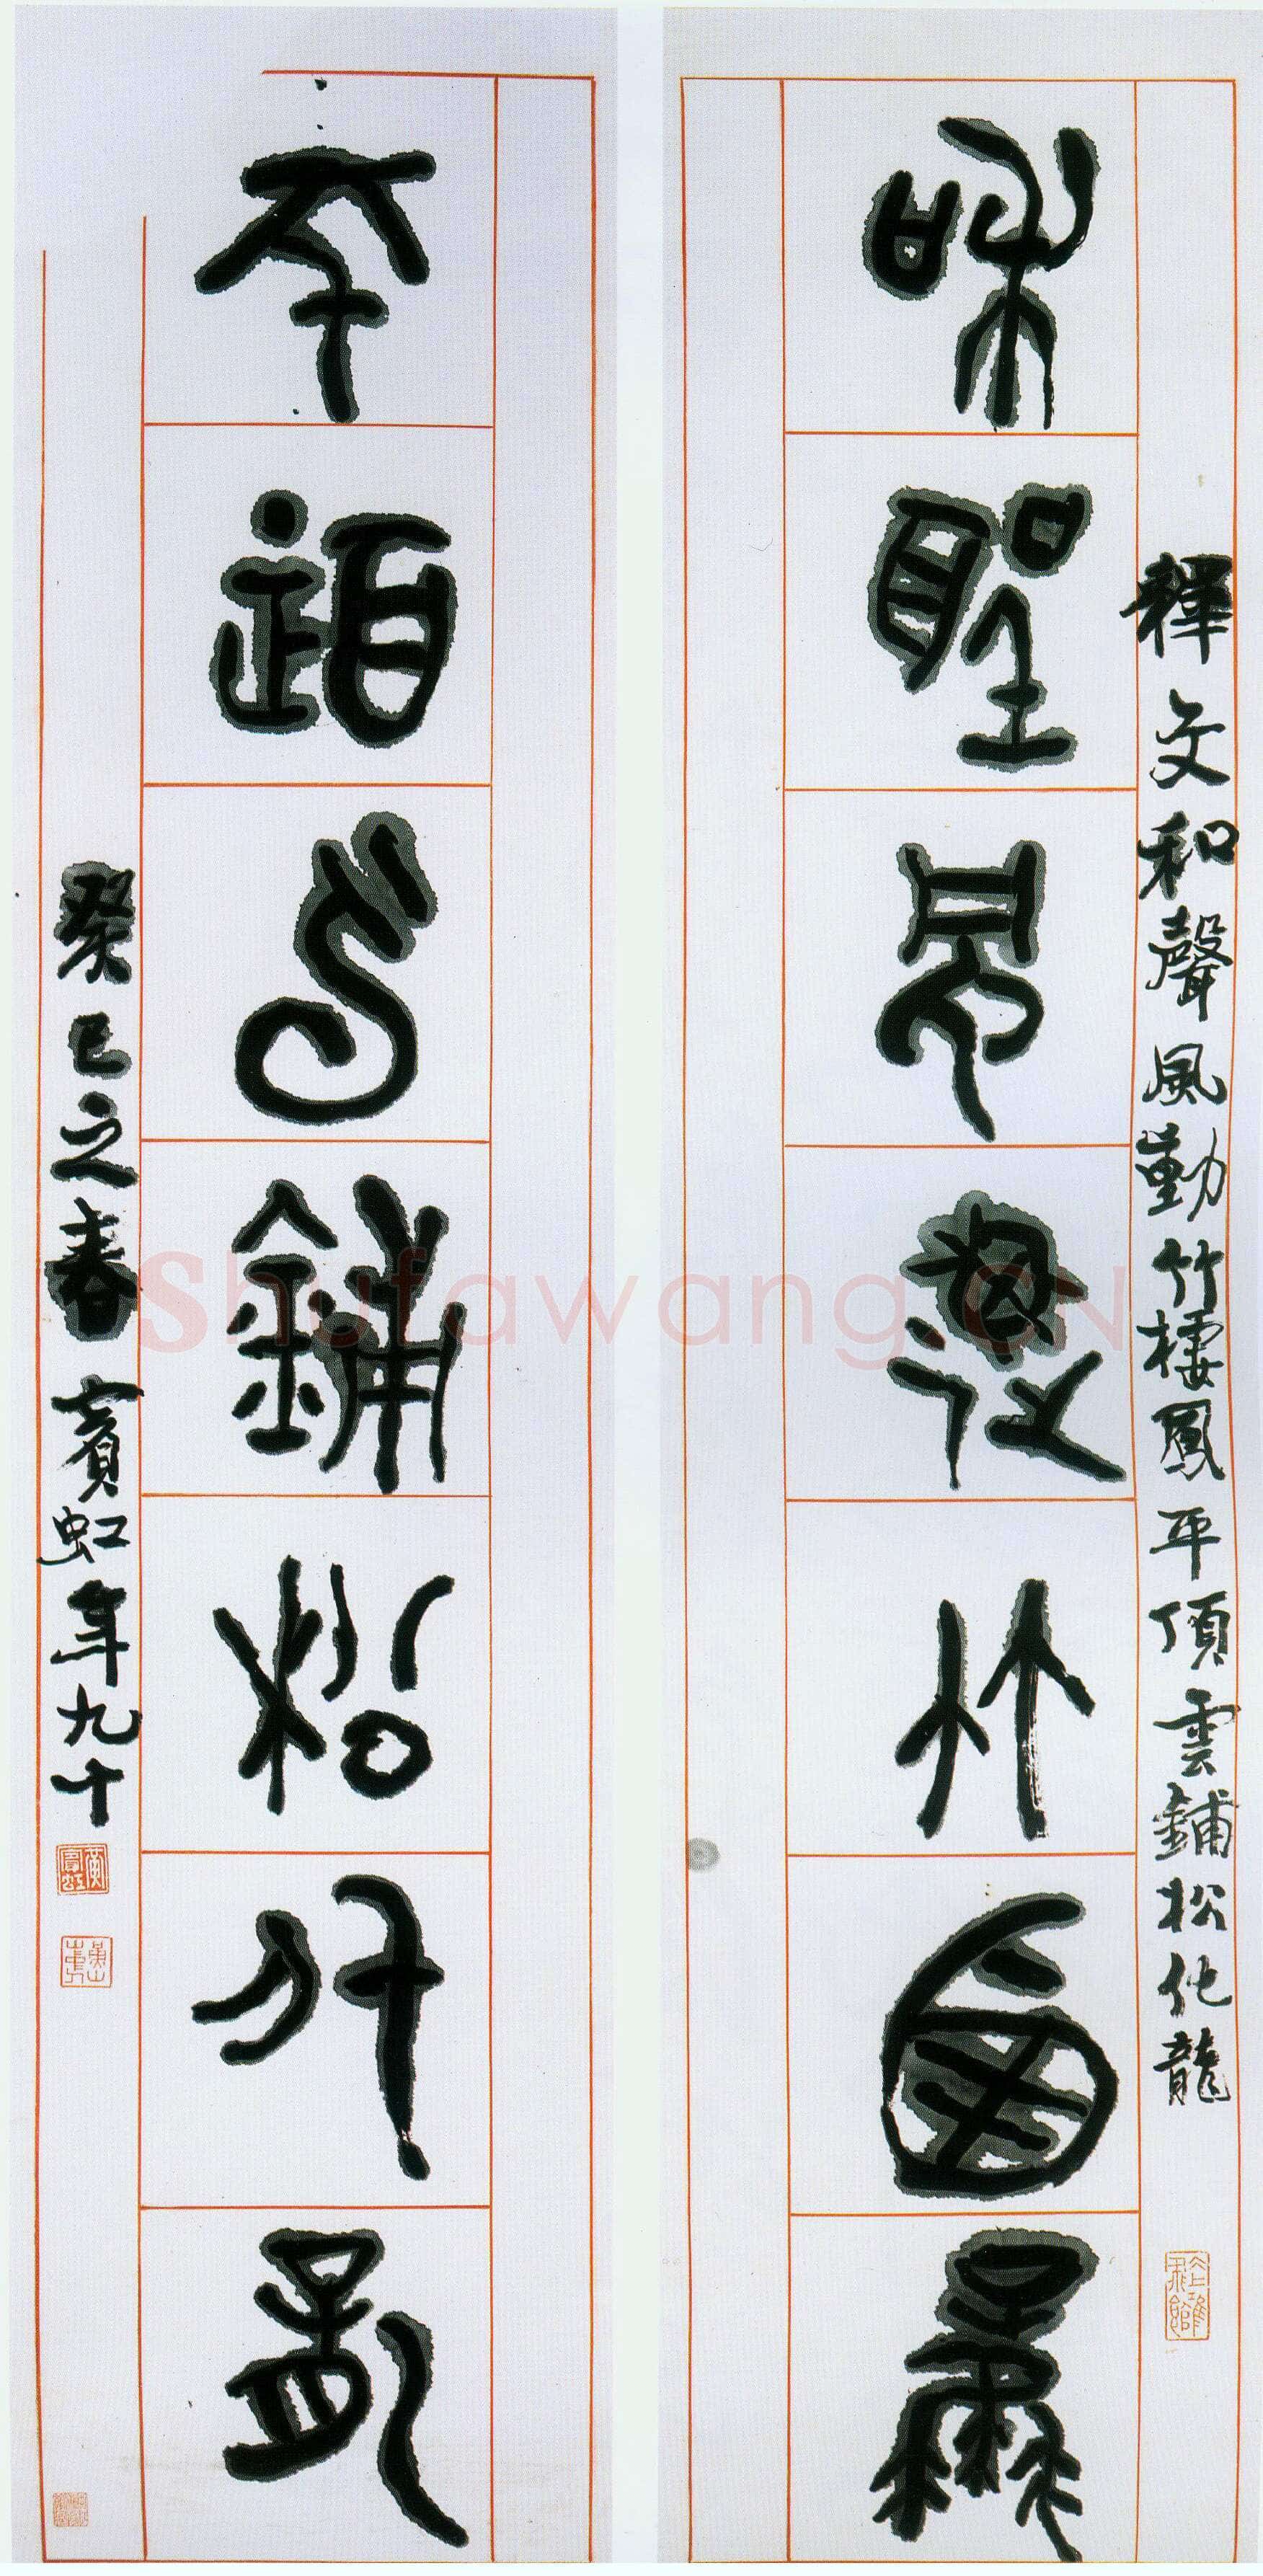 釋文和聲風動竹棲鳳平頂雲鋪松化龍
和聲風動竹棲鳳
平頂雲鋪松化龍
癸巳之春賓虹年九十
黃賓虹
Shufawang.CN